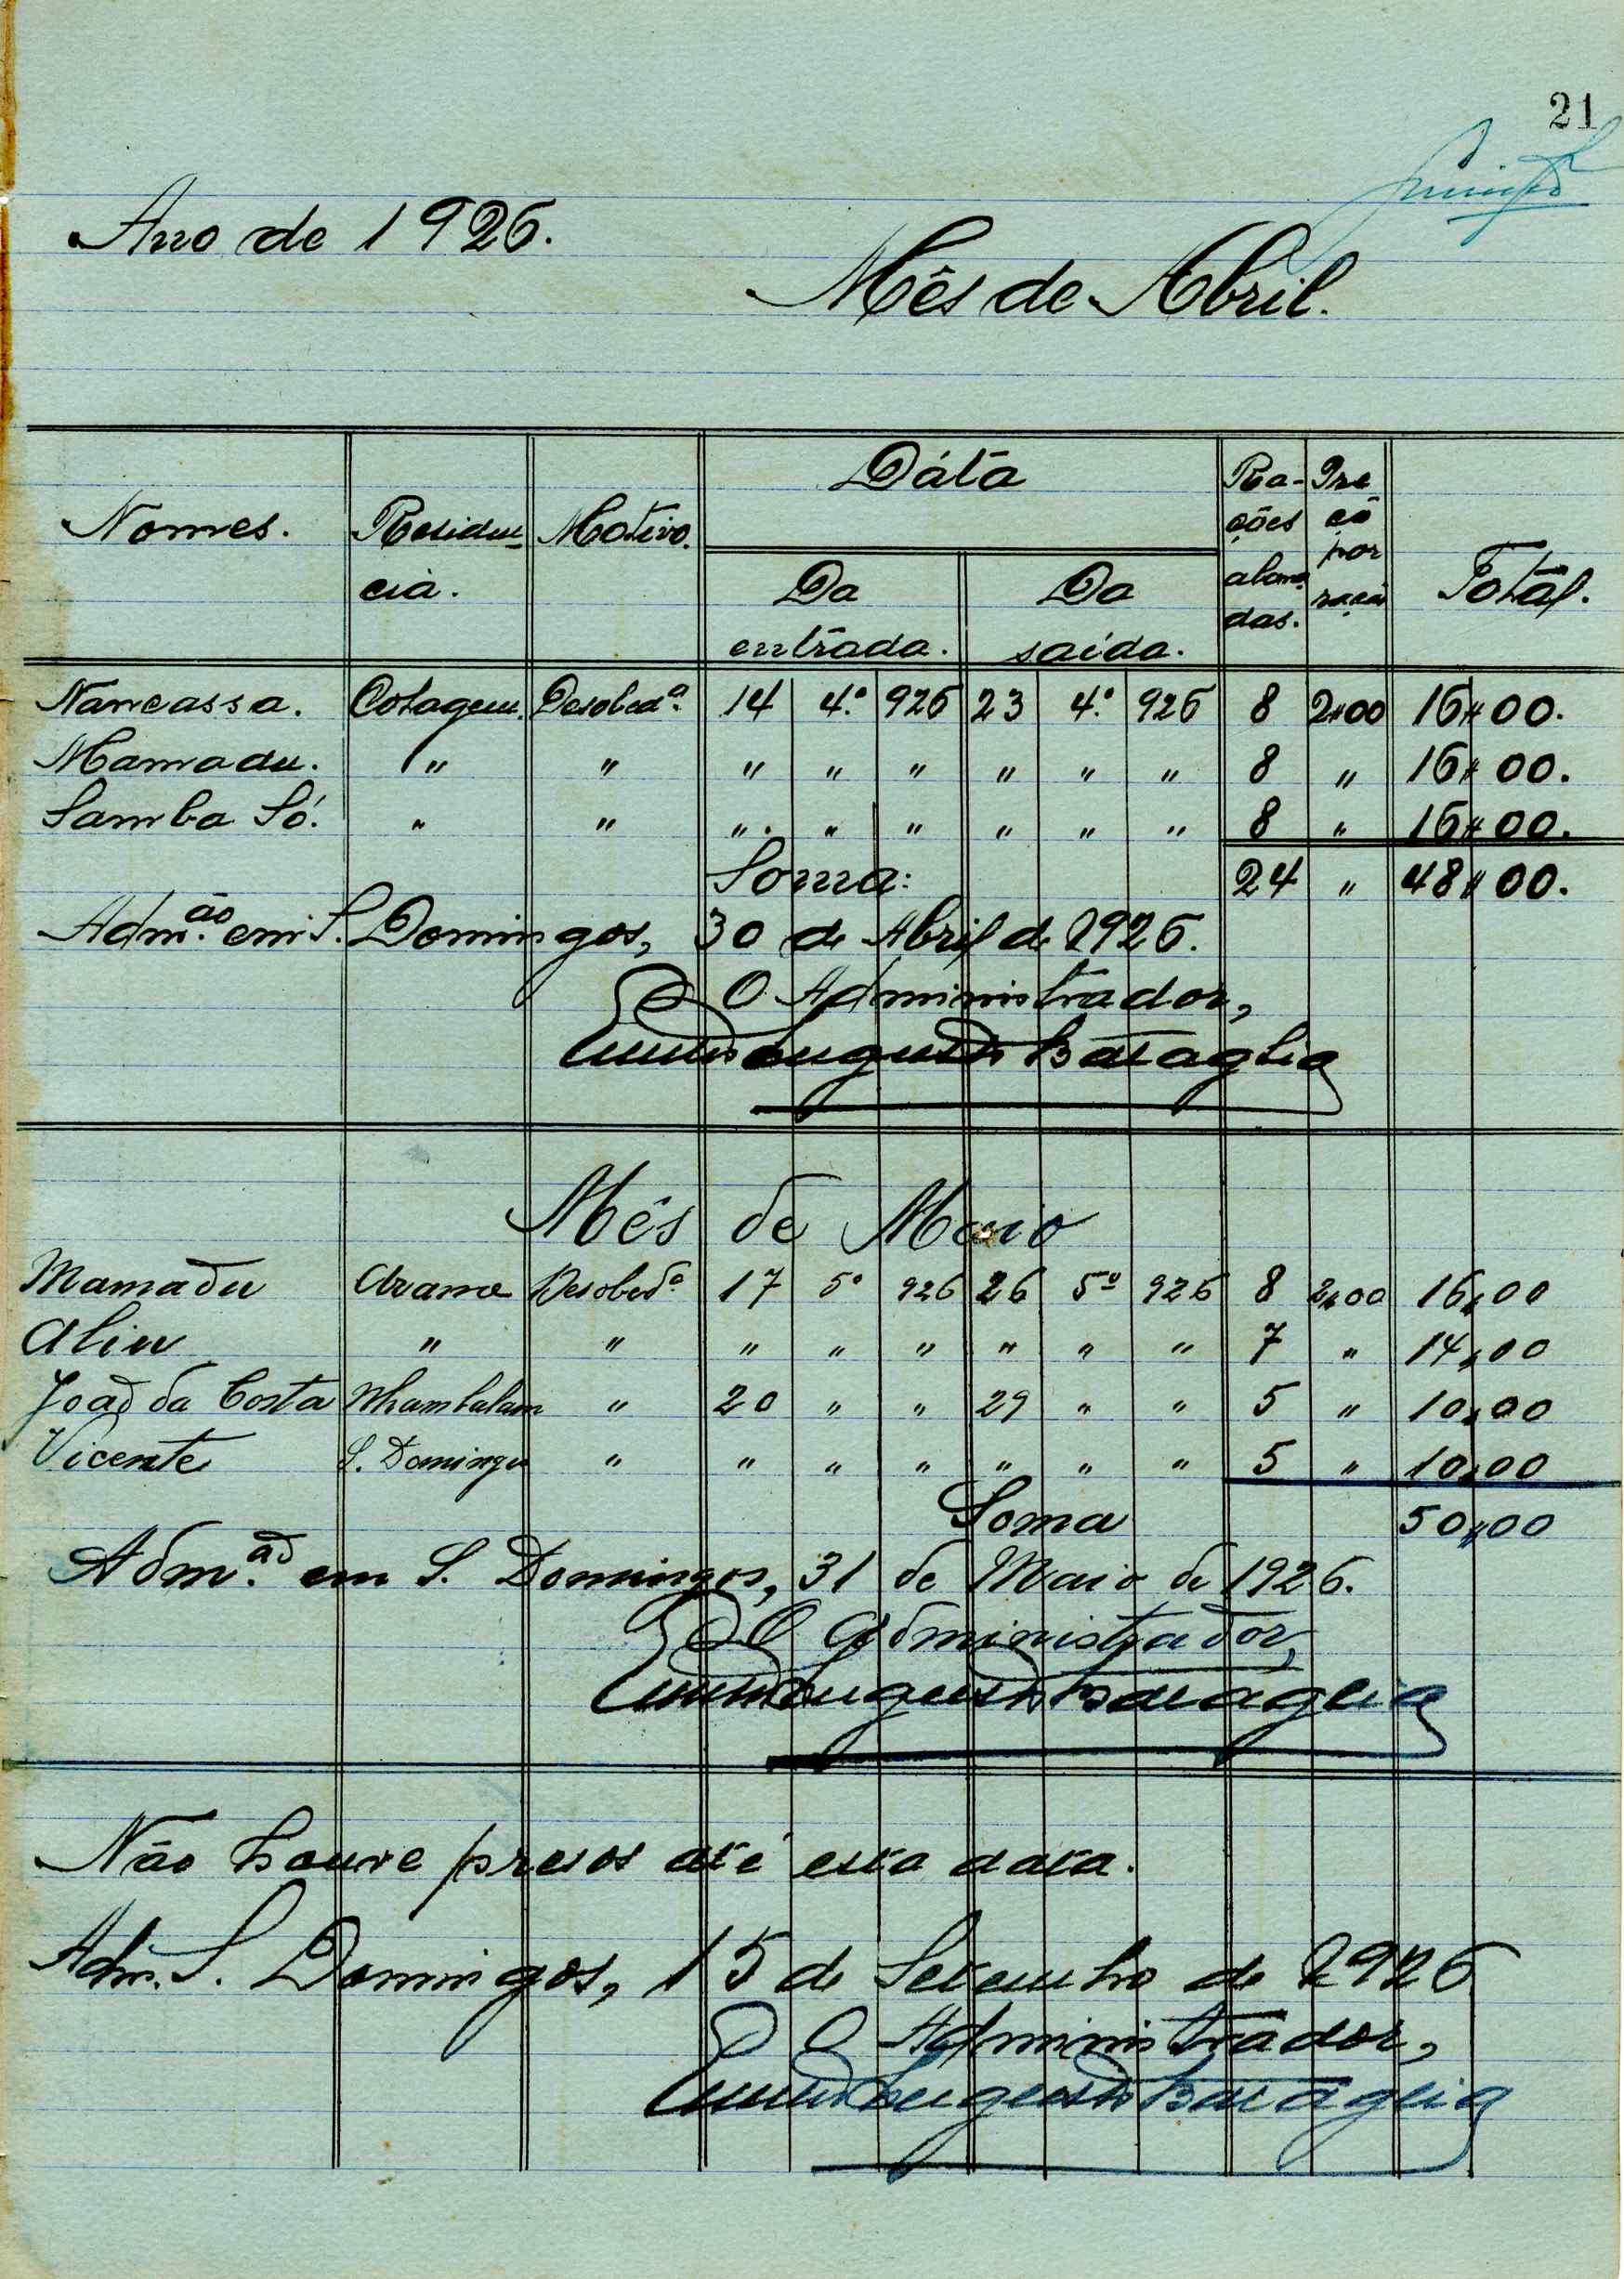 21
Ano de 1926.
Mês de Abril.
Nomes. Residen- Motivo. Dátā Ra- Pre
cia. ções ço
Da Da abona por
entrada. saída. das. ração Total.
Nancassa. Cotagem. Desobedª. 14 4.º 926 23 4.º 926 8 2$00 16$00.
Mamadu. " " " " " " " " 8 " 16$00.
Samba Só. " " " " " " " " 8 " 16$00.
Soma: 24 " 48$00.
Adm.ão em S. Domingos, 30 de Abril de 1926.
O Administrador,
Augusto Bataglia
Mês de Maio
Mamadu Arame Desobedª. 17 5º 926 26 5º 926 8 2$00 16$00
Aliu " " " " " " " " 7 " 14$00
João da Costa Nhambalam " 20 " " 29 " " 5 " 10$00
Vicente S. Domingos " " " " " " " 5 " 10$00
Soma 50$00
Adm.ão em S. Domingos, 31 de Maio de 1926.
O Administrador,
Augusto Bataglia
Não houve presos até esta data.
Adm. S. Domingos, 15 de Setembro de 1926
O Administrador,
Augusto Bataglia